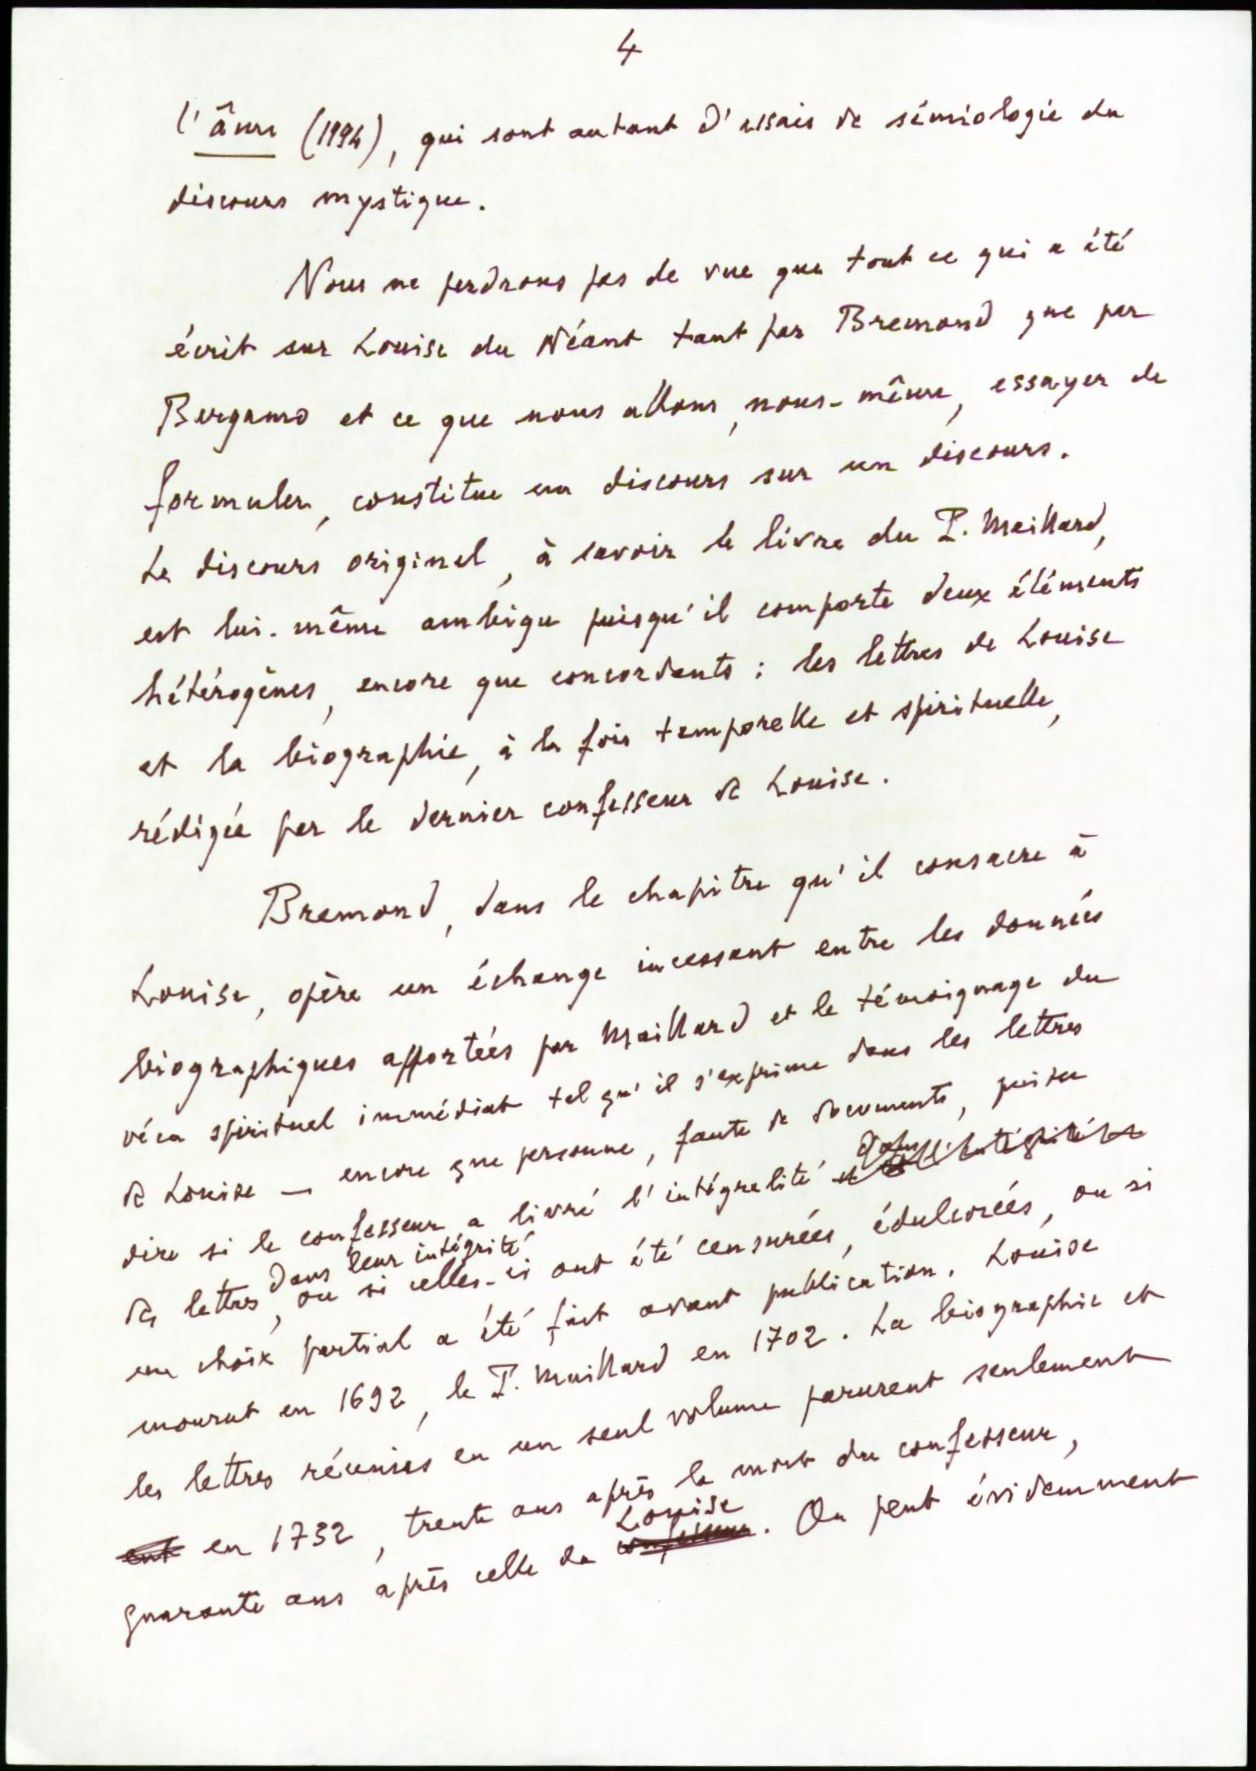 4
l'âme (1994), qui sont autant d'essais de sémiologie du
discours mystique.
Nous ne perdrons pas de vue que tout ce qui a été
écrit sur Louise du Néant tant par Bremond que par
Bergamo et ce que nous allons, nous-même, essayer de
formuler, constitue un discours sur un discours.
Le discours originel, à savoir le livre du P. Maillard,
est lui-même ambigu puisqu'il comporte deux éléments
hétérogènes, encore que concordants : les lettres de Louise
et la biographie, à la fois temporelle et spirituelle,
rédigée par le dernier confesseur de Louise.
Bremond, dans le chapitre qu'il consacre à
Louise, opère un échange incessant entre les données
biographiques apportées par Maillard et le témoignage du
vécu spirituel immédiat tel qu'il s'exprime dans les lettres
de Louise — encore que personne, faute de documents, puisse
dire si le confesseur a livré l'intégralité et dans l'intégrité
dans leur intégrité
des lettres, ou si celles-ci ont été censurées, édulcorées, ou si
un choix partial a été fait avant publication. Louise
mourut en 1692, le P. Maillard en 1702. La biographie et
les lettres réunies en un seul volume parurent seulement
ent en 1732, trente ans après la mort du confesseur,
Louise
quarante ans après celle du confesseur. On peut évidemment